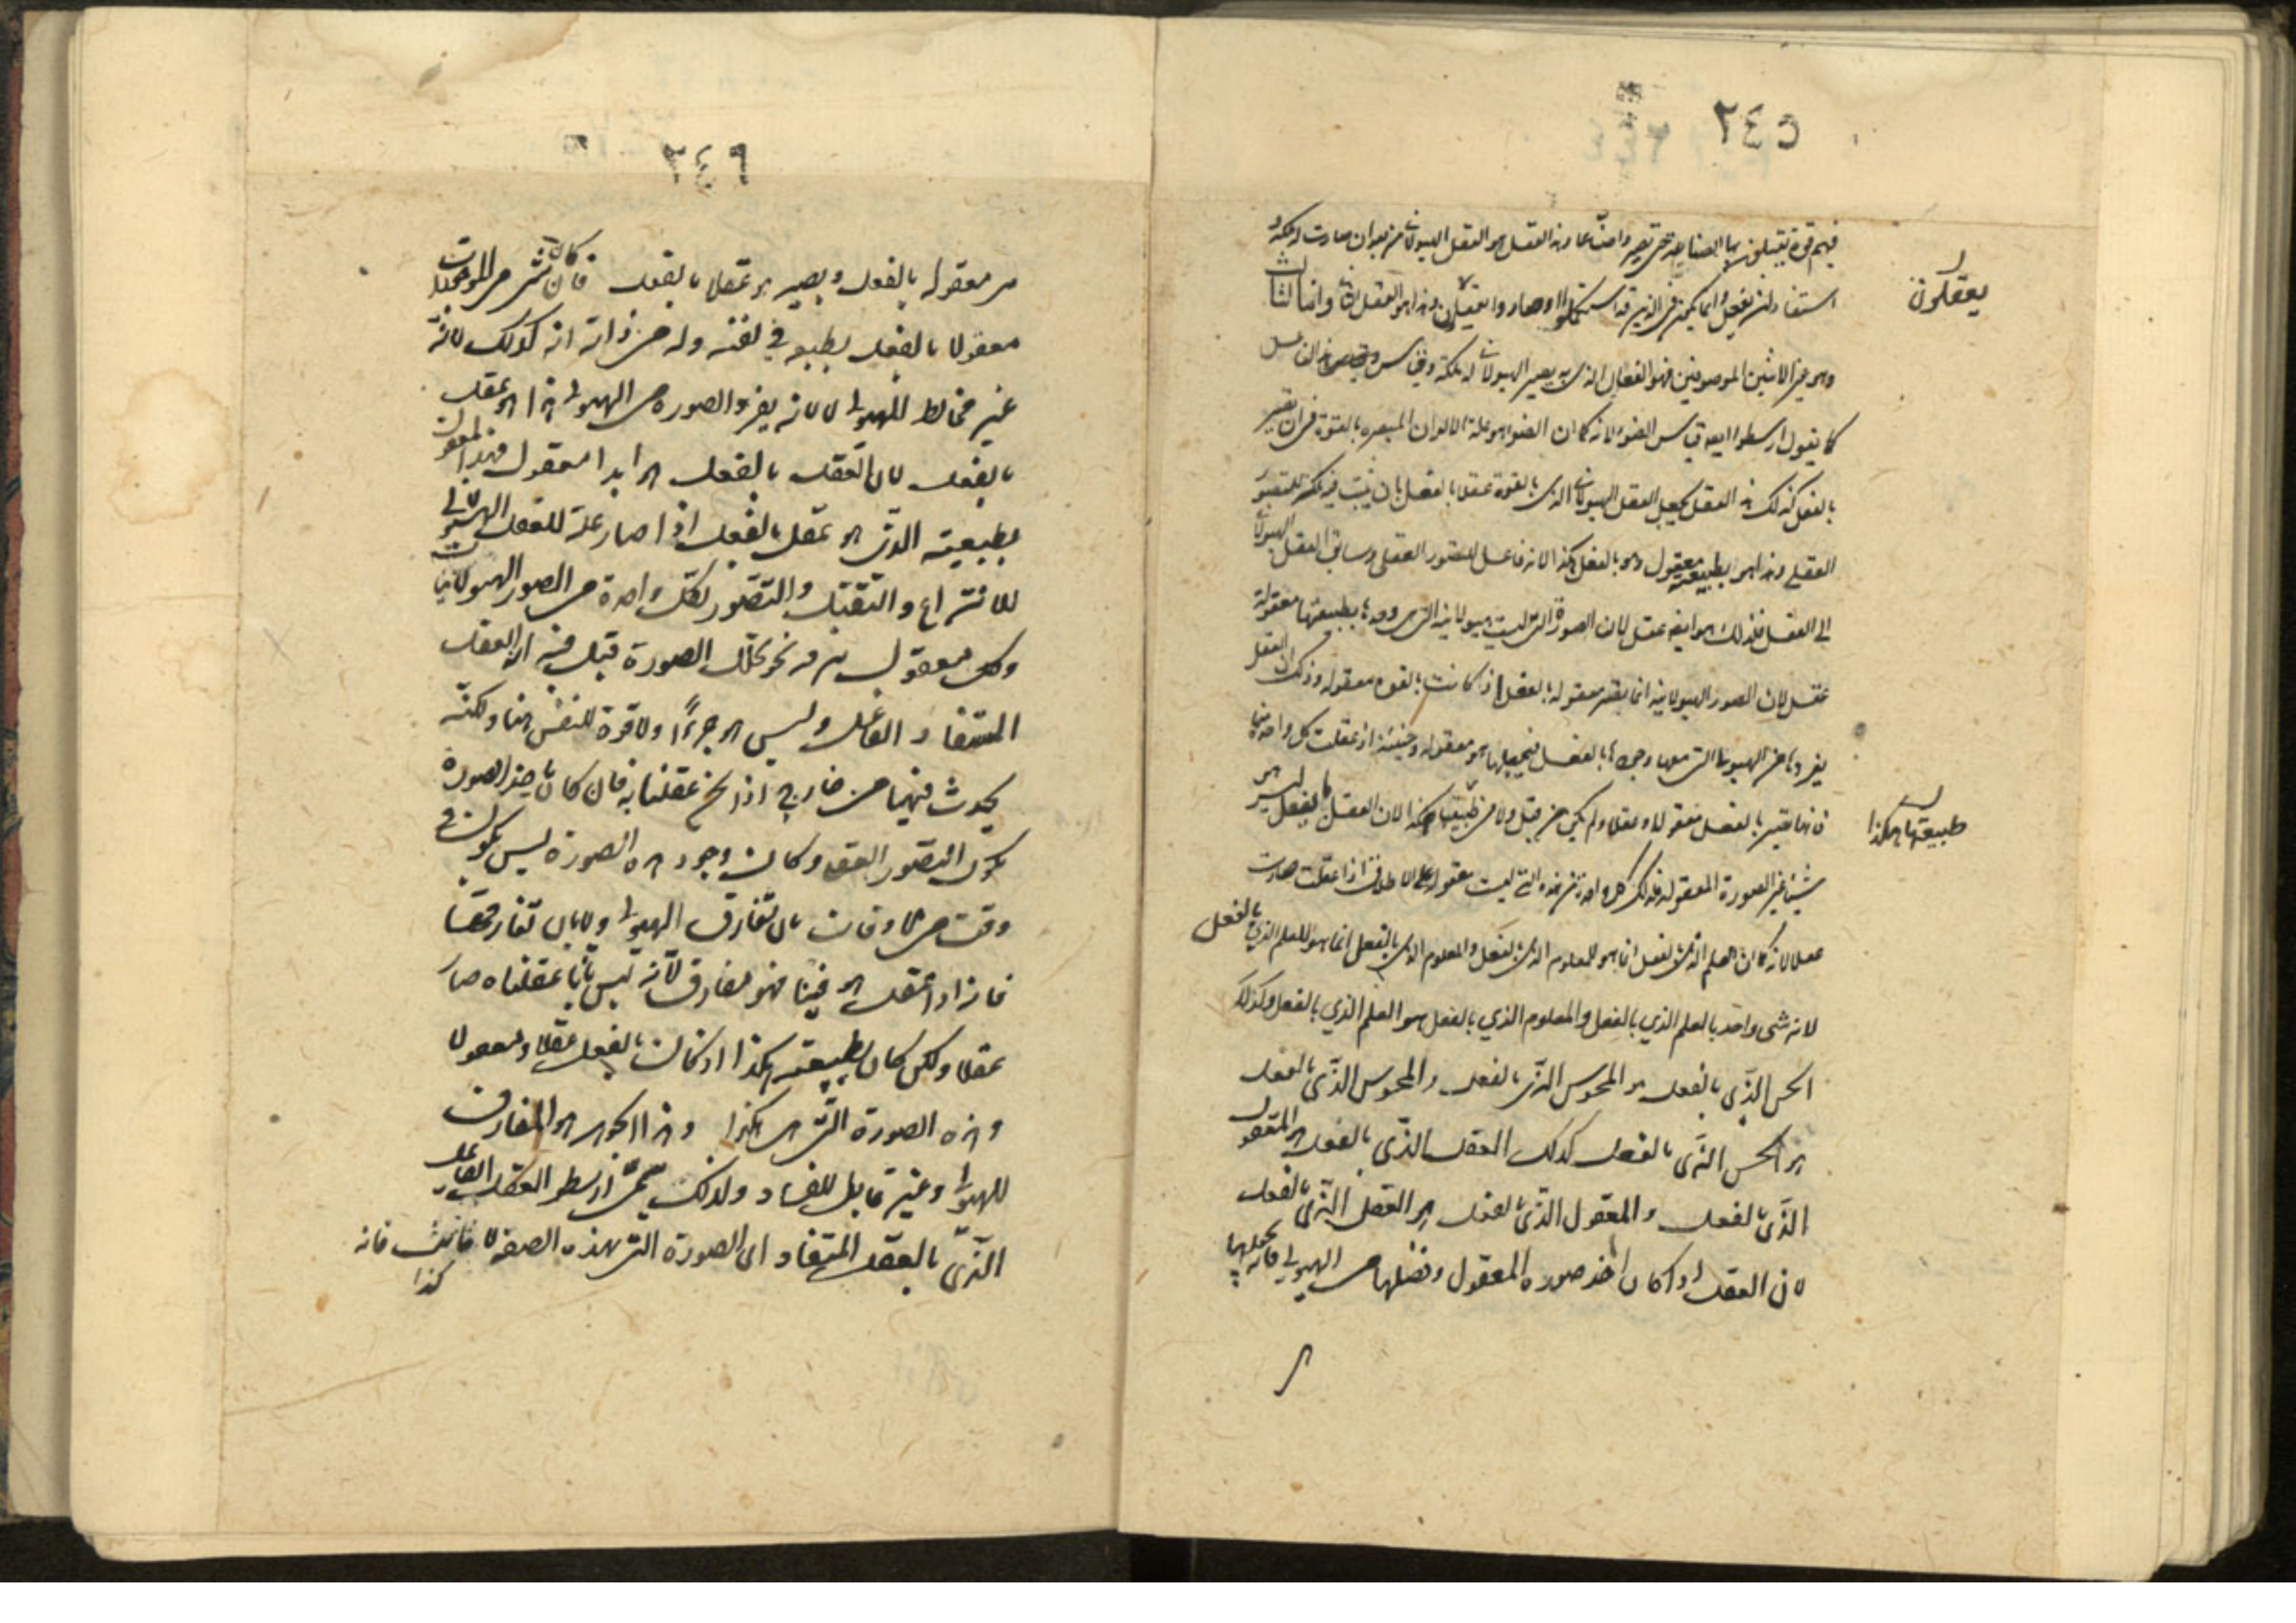 ٢٤٥
فيهم قوة يعقلون بها الصناعة حتى تصير واصناعا وهذا العقل هو العقل الهيولاني من بعد ان صارت له ملكة و
استفاد ان يفعل وانما يكون في الذين قد استكملوا وصاروا يعقلون وهذا هو العقل الثاني واما الثالث
وهو غير الاثنين الموصوفين فهو الفعال الذي به يصير الهيولاني له ملكة وقياس هذا الفاعل
كما يقول ارسطو ايضا قياس الضوء لانه كما ان الضوء هو علة الالوان المبصرة بالقوة في ان تصير
بالفعل كذلك هذا العقل يجعل العقل الهيولاني الذي بالقوة عقلا بالفعل بان يثبت فيه ملكة للتصور
العقلي وهذا هو بطبيعته معقول وهو بالفعل هكذا لانه فاعل للتصور العقلي وسائق العقل الهيولاني
الى العقل فلذلك هو ايضا عقل لان الصورة التي ليست هيولانية التي هي وحدها بطبيعتها معقولة
عقل لان الصور الهيولانية انما تصير معقولة بالفعل اذ كانت بالقوة معقولة وذلك ان العقل
يفردها من الهيولى التي معها وجودها بالفعل فيجعلها هو معقولة وحينئذ اذ عقلت كل واحدة منها
فانها تصير بالفعل معقولا وعقلا ولم يكن من قبل ولا من طبيعتها هكذا لان العقل بالفعل ليس هو
شيئا غير الصورة المعقولة فلذلك كل واحد من هذه التي ليست معقولة على الاطلاق اذا عقلت صارت
عقلا لانه كما ان العلم الذي بالفعل انما هو للمعلوم الذي بالفعل والمعلوم الذي بالفعل انما هو للعلم الذي بالفعل
لانه شى واحد بالعلم الذي بالفعل والمعلوم الذي بالفعل هو العلم الذي بالفعل وكذلك
الحس الذي بالفعل هو المحسوس الذي بالفعل والمحسوس الذي بالفعل
هو الحس الذي بالفعل كذلك العقل الذي بالفعل هو المعقول
الذي بالفعل والمعقول الذي بالفعل هو العقل الذي بالفعل
لان العقل اذا كان اخذ صورة المعقول وفصلها من الهيولى فانه يجعلها
يعقلون
طبيعتها هكذا
٢٤٦
هي معقولة بالفعل ويصير هو عقلا بالفعل فان كان شى من الموجودات
معقولا بالفعل بطبيعته في نفسه وله من ذاته انه كذلك لانه
غير مخالط للهيولى لا لانه يفرد الصورة من الهيولى هذا هو عقل
بالفعل لان العقل بالفعل هو ابدا معقول فهذا المعقول
بطبيعته الذي هو عقل بالفعل اذا صار علة للعقل الهيولاني
للانتزاع والتقبل والتصور لكل واحدة من الصور الهيولانية
وكل معقول بترقيه نحو تلك الصورة قيل فيه انه العقل
المستفاد الفاعل وليس هو جزءًا ولا قوة للنفس منا ولكنه
يحدث فينا من خارج اذا نحن عقلنا به فان كان باخذ الصورة
يكون التصور العقلي وكان وجود هذه الصورة ليس يكون في
وقت من الاوقات بان تفارق الهيولى ولا بان تفارقها
فان اذا عقل هو فينا فهو مفارق لانه ليس بانا عقلناه صار
عقلا ولكن كان بطبيعته هكذا اذ كان بالفعل عقلا ومعقولا
وهذه الصورة التي هي هكذا وهذا الجوهر هو المفارق
للهيولى وغير قابل للفساد ولذلك سمى ارسطو العقل الفاعل
الذي بالعقل المستفاد اى الصورة التي بهذه الصفة لا مائت فانه
كذا